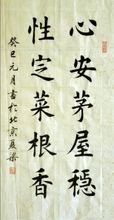 心安茅屋穩
性定菜根香
癸巳元月書於北京夏梁